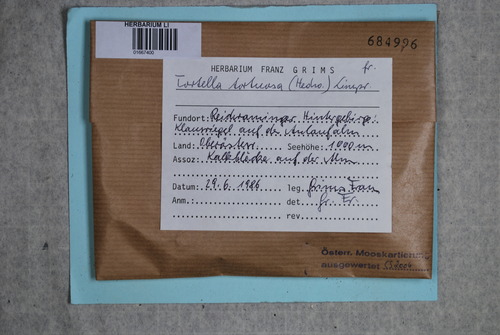 HERBARIUM LI
01667400
684996
HERBARIUM FRANZ GRIMS fr.
Tortella tortuosa (Hedw.) Limpr.
Fundort: Reichraminger Hintergebirge:
Klausriegel auf der Anlaufalm
Land: Oberösterr. Seehöhe: 1000 m
Assoz: Kalkblöcke auf der Alm
Datum: 29.6.1986 leg. Grims Franz
Anm.: det. Gr. Fr.
rev.
Österr. Mooskartierung
ausgewertet